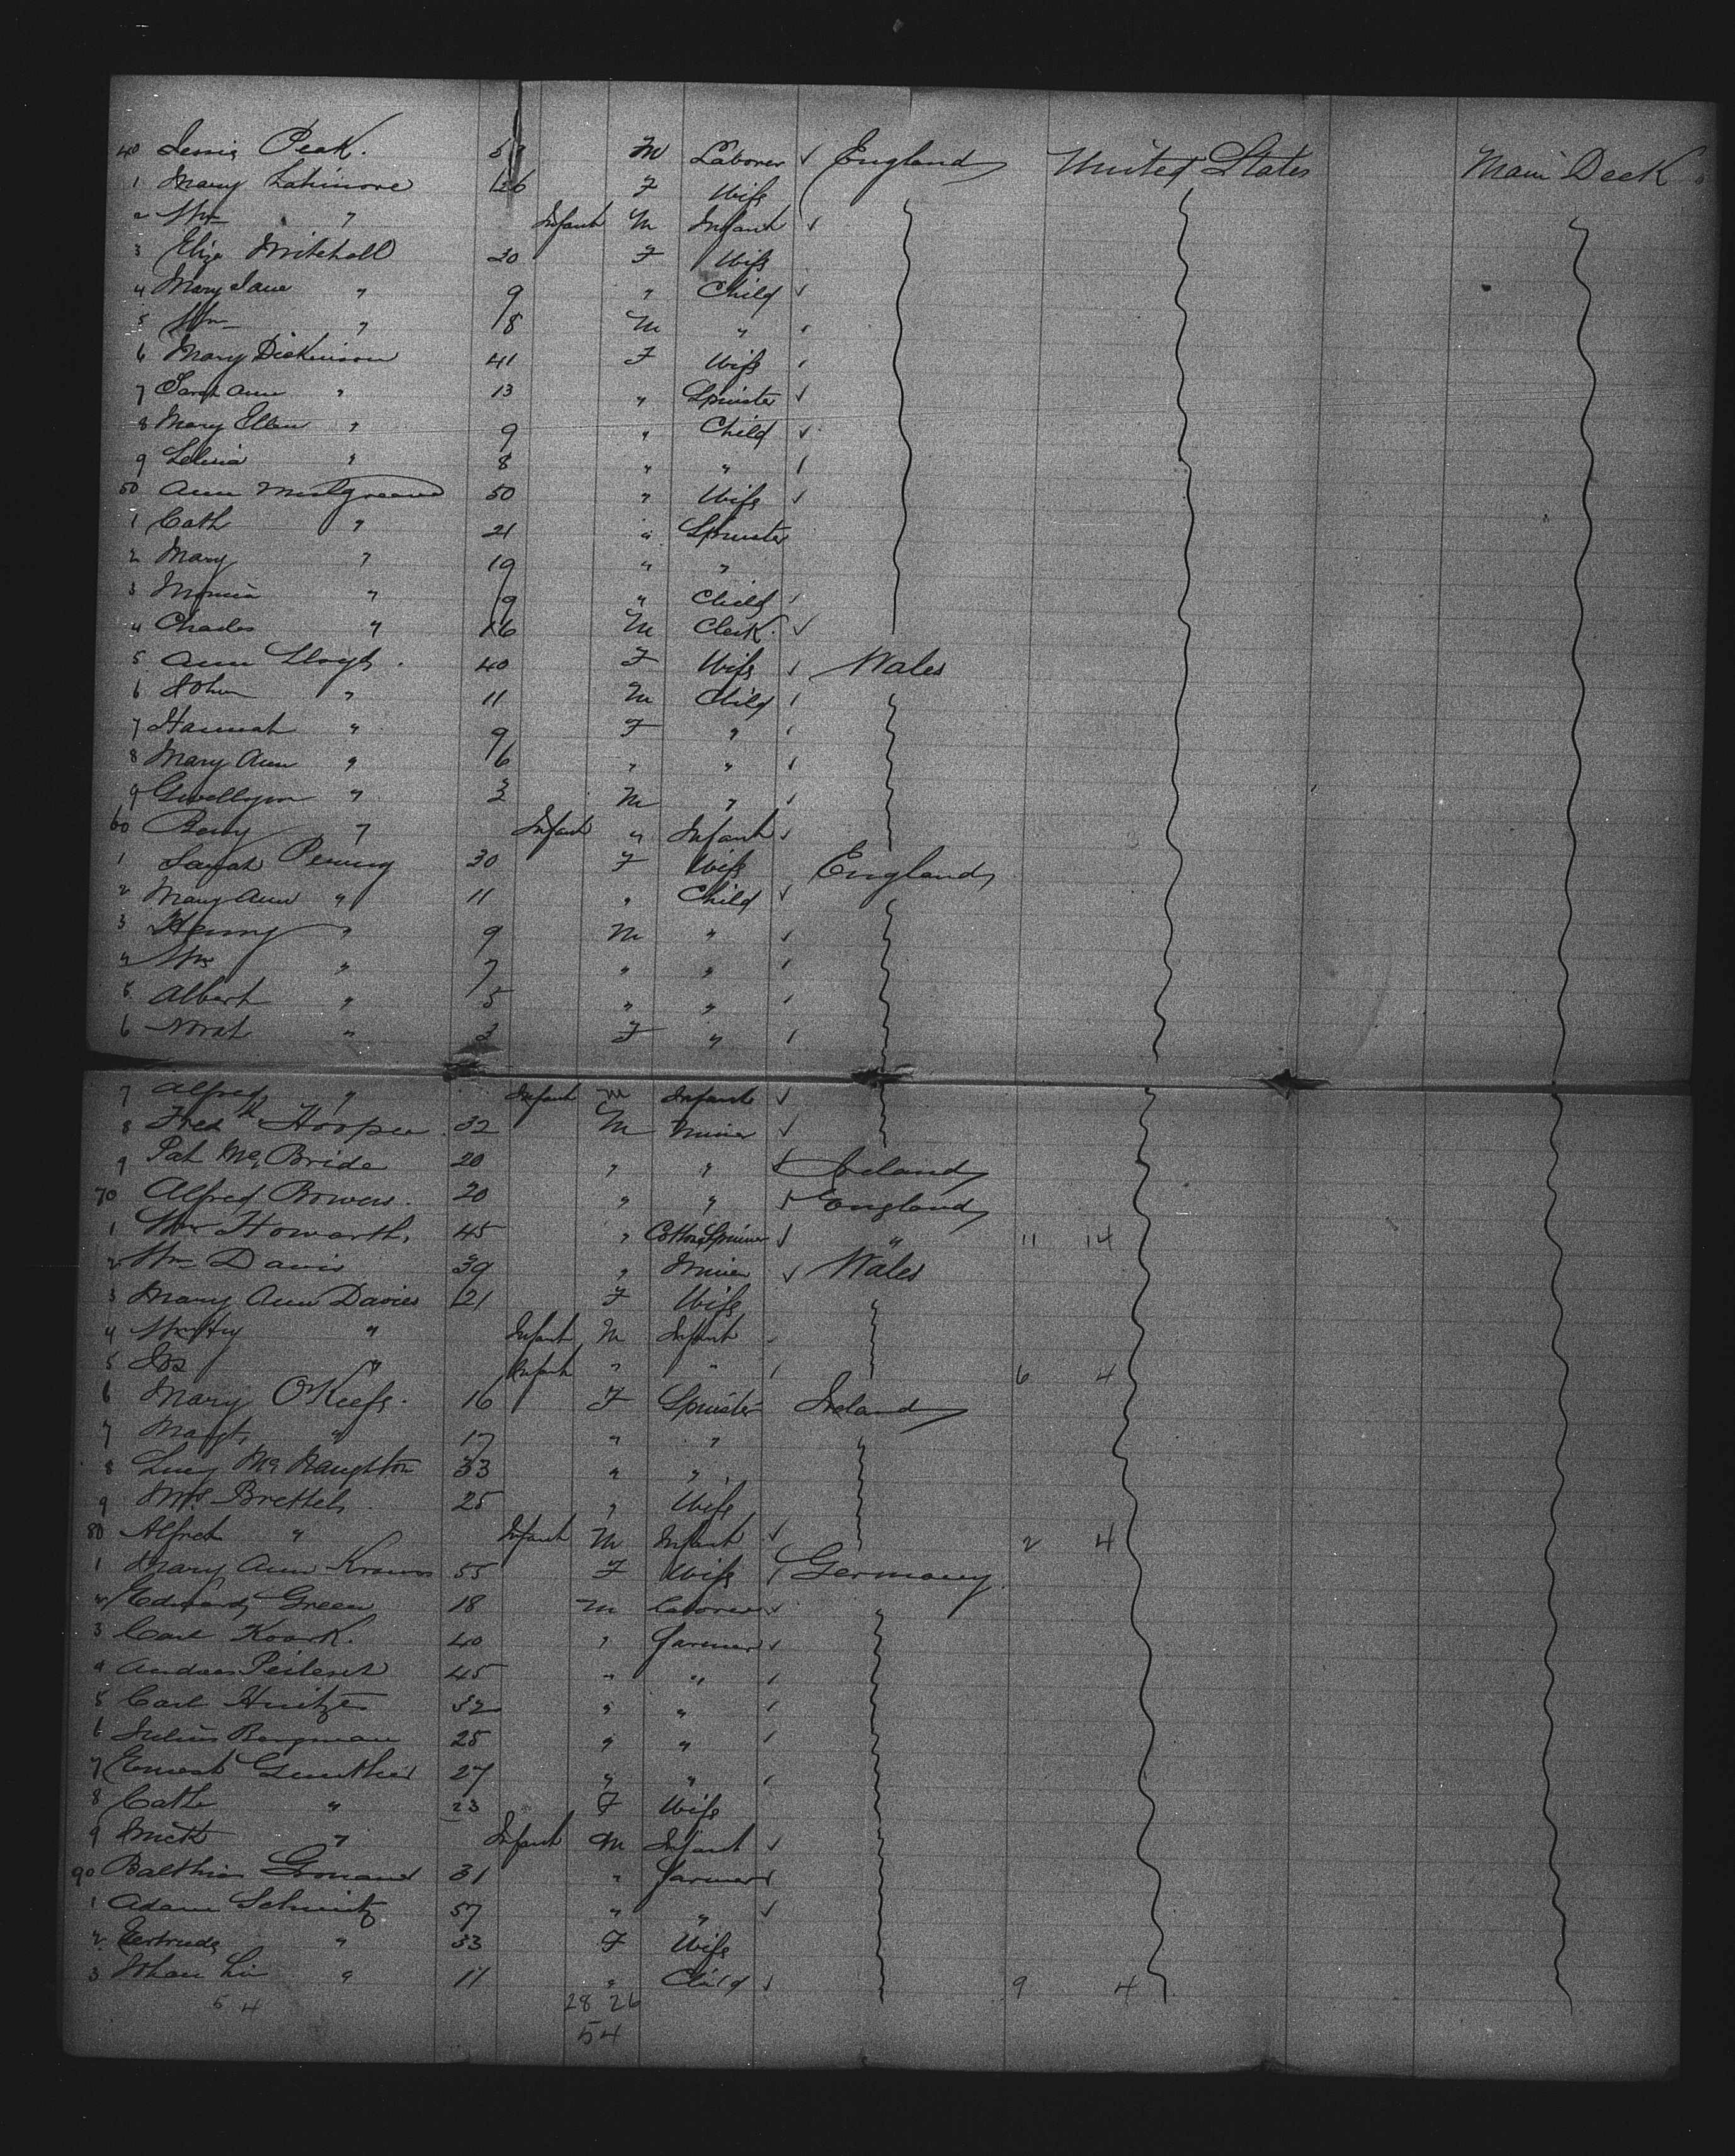 40 Peak. M Laborer ✓ England United States Main Deck
1 Mary Latimore 26 F Wife
2 Wm " Infant M Infant ✓
3 Eliza Mitchell 30 F Wife
4 Mary Jane " 9 " Child ✓
5 Wm " 8 M " ✓
6 Mary Dickinson 41 F Wife ✓
7 Sarah Ann " 13 " Spinster ✓
8 Mary Ellen " 9 " Child ✓
9 " 8 " " ✓
50 Ann 50 " Wife ✓
1 Cath " 21 " Spinster
2 Mary " 19 " "
3 " 9 " Child ✓
4 Charles " 16 M Clerk. ✓
5 Ann Lloyd. 40 F Wife ✓ Wales
6 John " 11 M Child ✓
7 Hannah " 9 F " ✓
8 Mary Ann " 6 " " ✓
9 Gwellym " 3 M " ✓
60 " Infant " Infant ✓
1 Sarah 30 F Wife England
2 Mary Ann " 11 " Child ✓
3 Henry " 9 M " ✓
4 Wm " 7 " " ✓
5 Albert " 5 " " ✓
6 Norah " 3 F " ✓
7 Alfred " Infant M Infant ✓
8 Fredk Hooper 32 M Miner ✓
9 Pat McBride 20 " " ✓ Ireland
70 Alfred Bowen. 20 " " ✓ England
1 Wm Howarth, 45 " Cotton Spinner ✓ " 11 14
2 Wm Davis 39 " Miner ✓ Wales
3 Mary Ann Davies 21 F Wife
4 Wm Hy " Infant M Infant ✓
5 Jos " Infant " " ✓ 6 4
6 Mary O'Keefe. 16 F Spinster Ireland
7 Margt, " 17 " "
8 Lucy McNaughton 33 " "
9 Mrs. Brettel 25 " Wife
80 Alfred " Infant M Infant ✓ 2 4
1 Mary Ann 55 F Wife ✓ Germany
2 Edward Green 18 M Laborer ✓
3 Carl 40 " farmer ✓
4 Andreas 45 " " ✓
5 Carl 32 " " ✓
6 Julius Bergman 25 " " ✓
7 Ernest Gunther 27 " " ✓
8 Cath " 23 F Wife
9 " Infant M Infant ✓
90 31 " farmer ✓
1 Adam Schmitz 57 " " ✓
2 Gertrude " 33 F Wife
3 Johan " 11 " Child ✓ 9 4
54 28 26
54